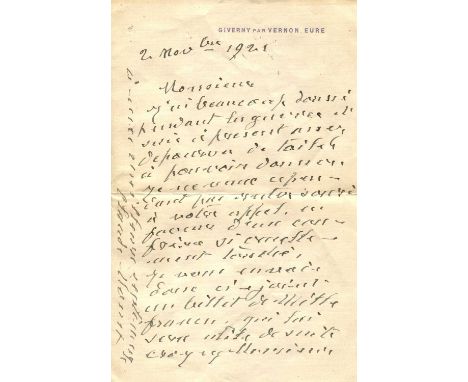 GIVERNY PAR VERNON, EURE
2 Novbre 1921
Monsieur
j'ai beaucoup donné
pendant la guerre et
suis à présent assez
dépourvu de toiles
à pouvoir donner
je ne veux cepen-
dant pas rester sourd
à votre appel, en
faveur d'un con-
frère si cruelle-
ment touché,
je vous envoie
donc ci-joint
un billet de mille
francs, qui lui
sera utile de suite
croyez Monsieur
à mes
Claude Monet